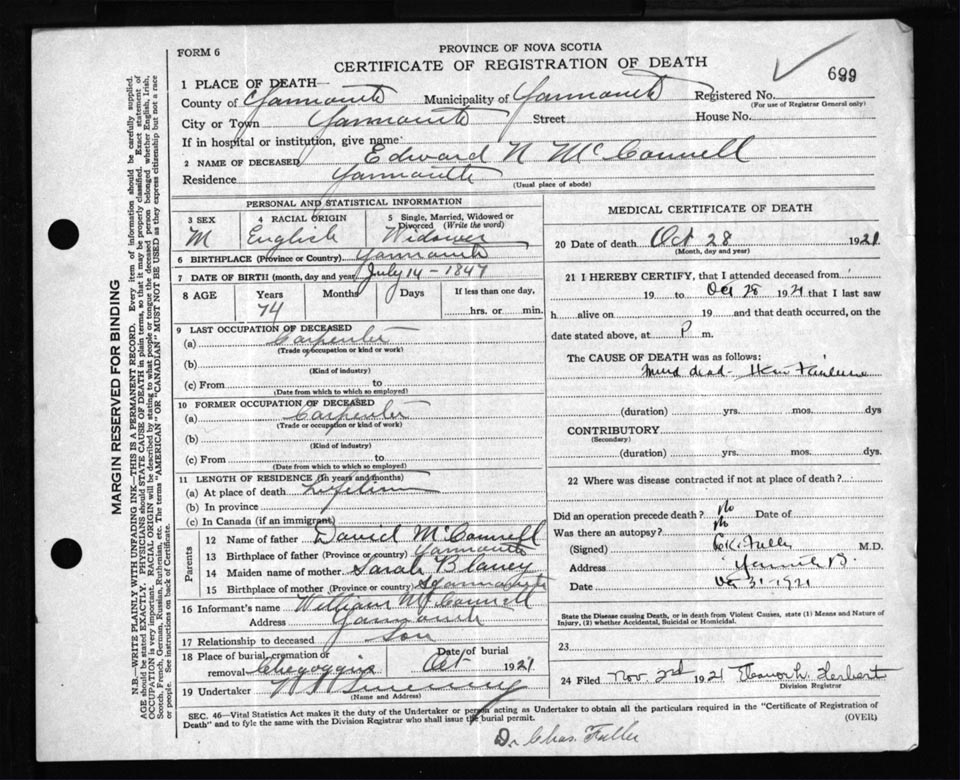 FORM 6
PROVINCE OF NOVA SCOTIA
CERTIFICATE OF REGISTRATION OF DEATH
699
1 PLACE OF DEATH—
County of Yarmouth Municipality of Yarmouth Registered No.
(For use of Registrar General only)
City or Town Yarmouth Street House No.
If in hospital or institution, give name
2 NAME OF DECEASED Edward N McConnell
Residence Yarmouth
(Usual place of abode)
PERSONAL AND STATISTICAL INFORMATION
3 SEX 4 RACIAL ORIGIN 5 Single, Married, Widowed or Divorced (Write the word)
M English Widower
6 BIRTHPLACE (Province or Country) Yarmouth
7 DATE OF BIRTH (month, day and year) July 14 - 1847
8 AGE Years Months Days If less than one day,
74 hrs. or min.
9 LAST OCCUPATION OF DECEASED
(a) Carpenter
(Trade or occupation or kind or work)
(b)
(Kind of industry)
(c) From to
(Date from which to which so employed)
10 FORMER OCCUPATION OF DECEASED
(a) Carpenter
(Trade or occupation or kind of work)
(b)
(Kind of industry)
(c) From to
(Date from which to which so employed)
11 LENGTH OF RESIDENCE (In years and months)
(a) At place of death Lifetime
(b) In province
(c) In Canada (if an immigrant)
Parents
12 Name of father David McConnell
13 Birthplace of father (Province or country) Yarmouth
14 Maiden name of mother Sarah Blaney
15 Birthplace of mother (Province or country) Yarmouth
16 Informant's name William McConnell
Address Yarmouth
17 Relationship to deceased Son
18 Place of burial, cremation or removal Chegoggin Date of burial Oct 1921
19 Undertaker Sweeney
(Name and Address)
MEDICAL CERTIFICATE OF DEATH
20 Date of death Oct 28 1921
(Month, day and year)
21 I HEREBY CERTIFY, that I attended deceased from
19 to Oct 28 1921 that I last saw
h alive on 19 and that death occurred, on the
date stated above, at P m.
The CAUSE OF DEATH was as follows:
Found dead - Heart Failure
(duration) yrs. mos. dys
CONTRIBUTORY
(Secondary)
(duration) yrs. mos. dys
22 Where was disease contracted if not at place of death?
Did an operation precede death? No Date of
Was there an autopsy? No
(Signed) Fuller M.D.
Address Yarmouth
Date Oct 31-1921
State the Disease causing Death, or in death from Violent Causes, state (1) Means and Nature of Injury, (2) whether Accidental, Suicidal or Homicidal.
23
24 Filed Nov. 2nd 1921 Eleanor L. Herbert
Division Registrar
SEC. 46—Vital Statistics Act makes it the duty of the Undertaker or person acting as Undertaker to obtain all the particulars required in the "Certificate of Registration of
Death" and to fyle the same with the Division Registrar who shall issue the burial permit.
(OVER)
Dr Chas. Fuller
MARGIN RESERVED FOR BINDING
N.B.—WRITE PLAINLY WITH UNFADING INK—THIS IS A PERMANENT RECORD. Every item of information should be carefully supplied.
AGE should be stated EXACTLY. PHYSICIANS should STATE CAUSE OF DEATH in plain terms, so that it may be properly classified. Exact statement of
OCCUPATION is very important. RACIAL ORIGIN will be described by stating to what people or tongue the deceased person belonged whether English, Irish,
Scotch, French, German, Russian, Ruthenian, etc. The terms "AMERICAN" OR "CANADIAN" MUST NOT BE USED as they express citizenship but not a race
or people. See instructions on back of Certificate.